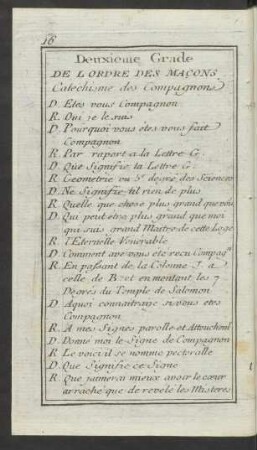 16
Deuxieme Grade
DE L'ORDRE DES MAÇONS
Catechisme des Compagnons
D. Etes vous Compagnon
R. Oui je le suis
D. Pourquoi vous êtes vous fait
Compagnon
R. Par raport a la Lettre G.
D. Que Signifie la Lettre G.
R. Geometrie ou 5e degré des Sciences
D. Ne Signifie til rien de plus
R. Quelle que chose plus grand que vous
D. Qui peut etre plus grand que moi
qui suis grand Maitre de cette Loge
R. l'Eternelle Venerable
D. Comment ave vous ete recu Compagn
R. En passant de la Colonne J. a
celle de B. et en montant les 7
Degres du Temple de Salomon
D. A quoi connaitraije si vous etes
Compagnon
R. A mes Signes parolle et Attouchemt
D. Donne moi le Signe de Compagnon
R. Le voici il se nomme pectoralle
D. Que Signifie ce Signe
R. Que jaimerai mieux avoir le cœur
arraché que de revelé les Misteres